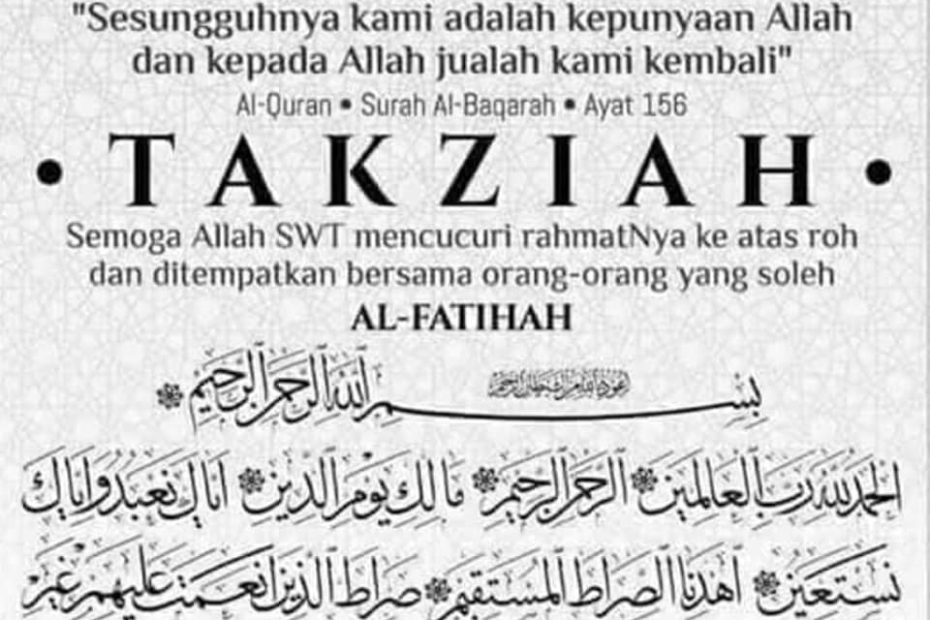 "Sesungguhnya kami adalah kepunyaan Allah
dan kepada Allah jualah kami kembali"
Al-Quran • Surah Al-Baqarah • Ayat 156
• TAKZIAH •
Semoga Allah SWT mencucuri rahmatNya ke atas roh
dan ditempatkan bersama orang-orang yang soleh
AL-FATIHAH
أعوذ بالله من الشيطان الرجيم
بسم الله الرحمن الرحيم
الحمد لله رب العالمين الرحمن الرحيم مالك يوم الدين اياك نعبد واياك
نستعين اهدنا الصراط المستقيم صراط الذين انعمت عليهم غير